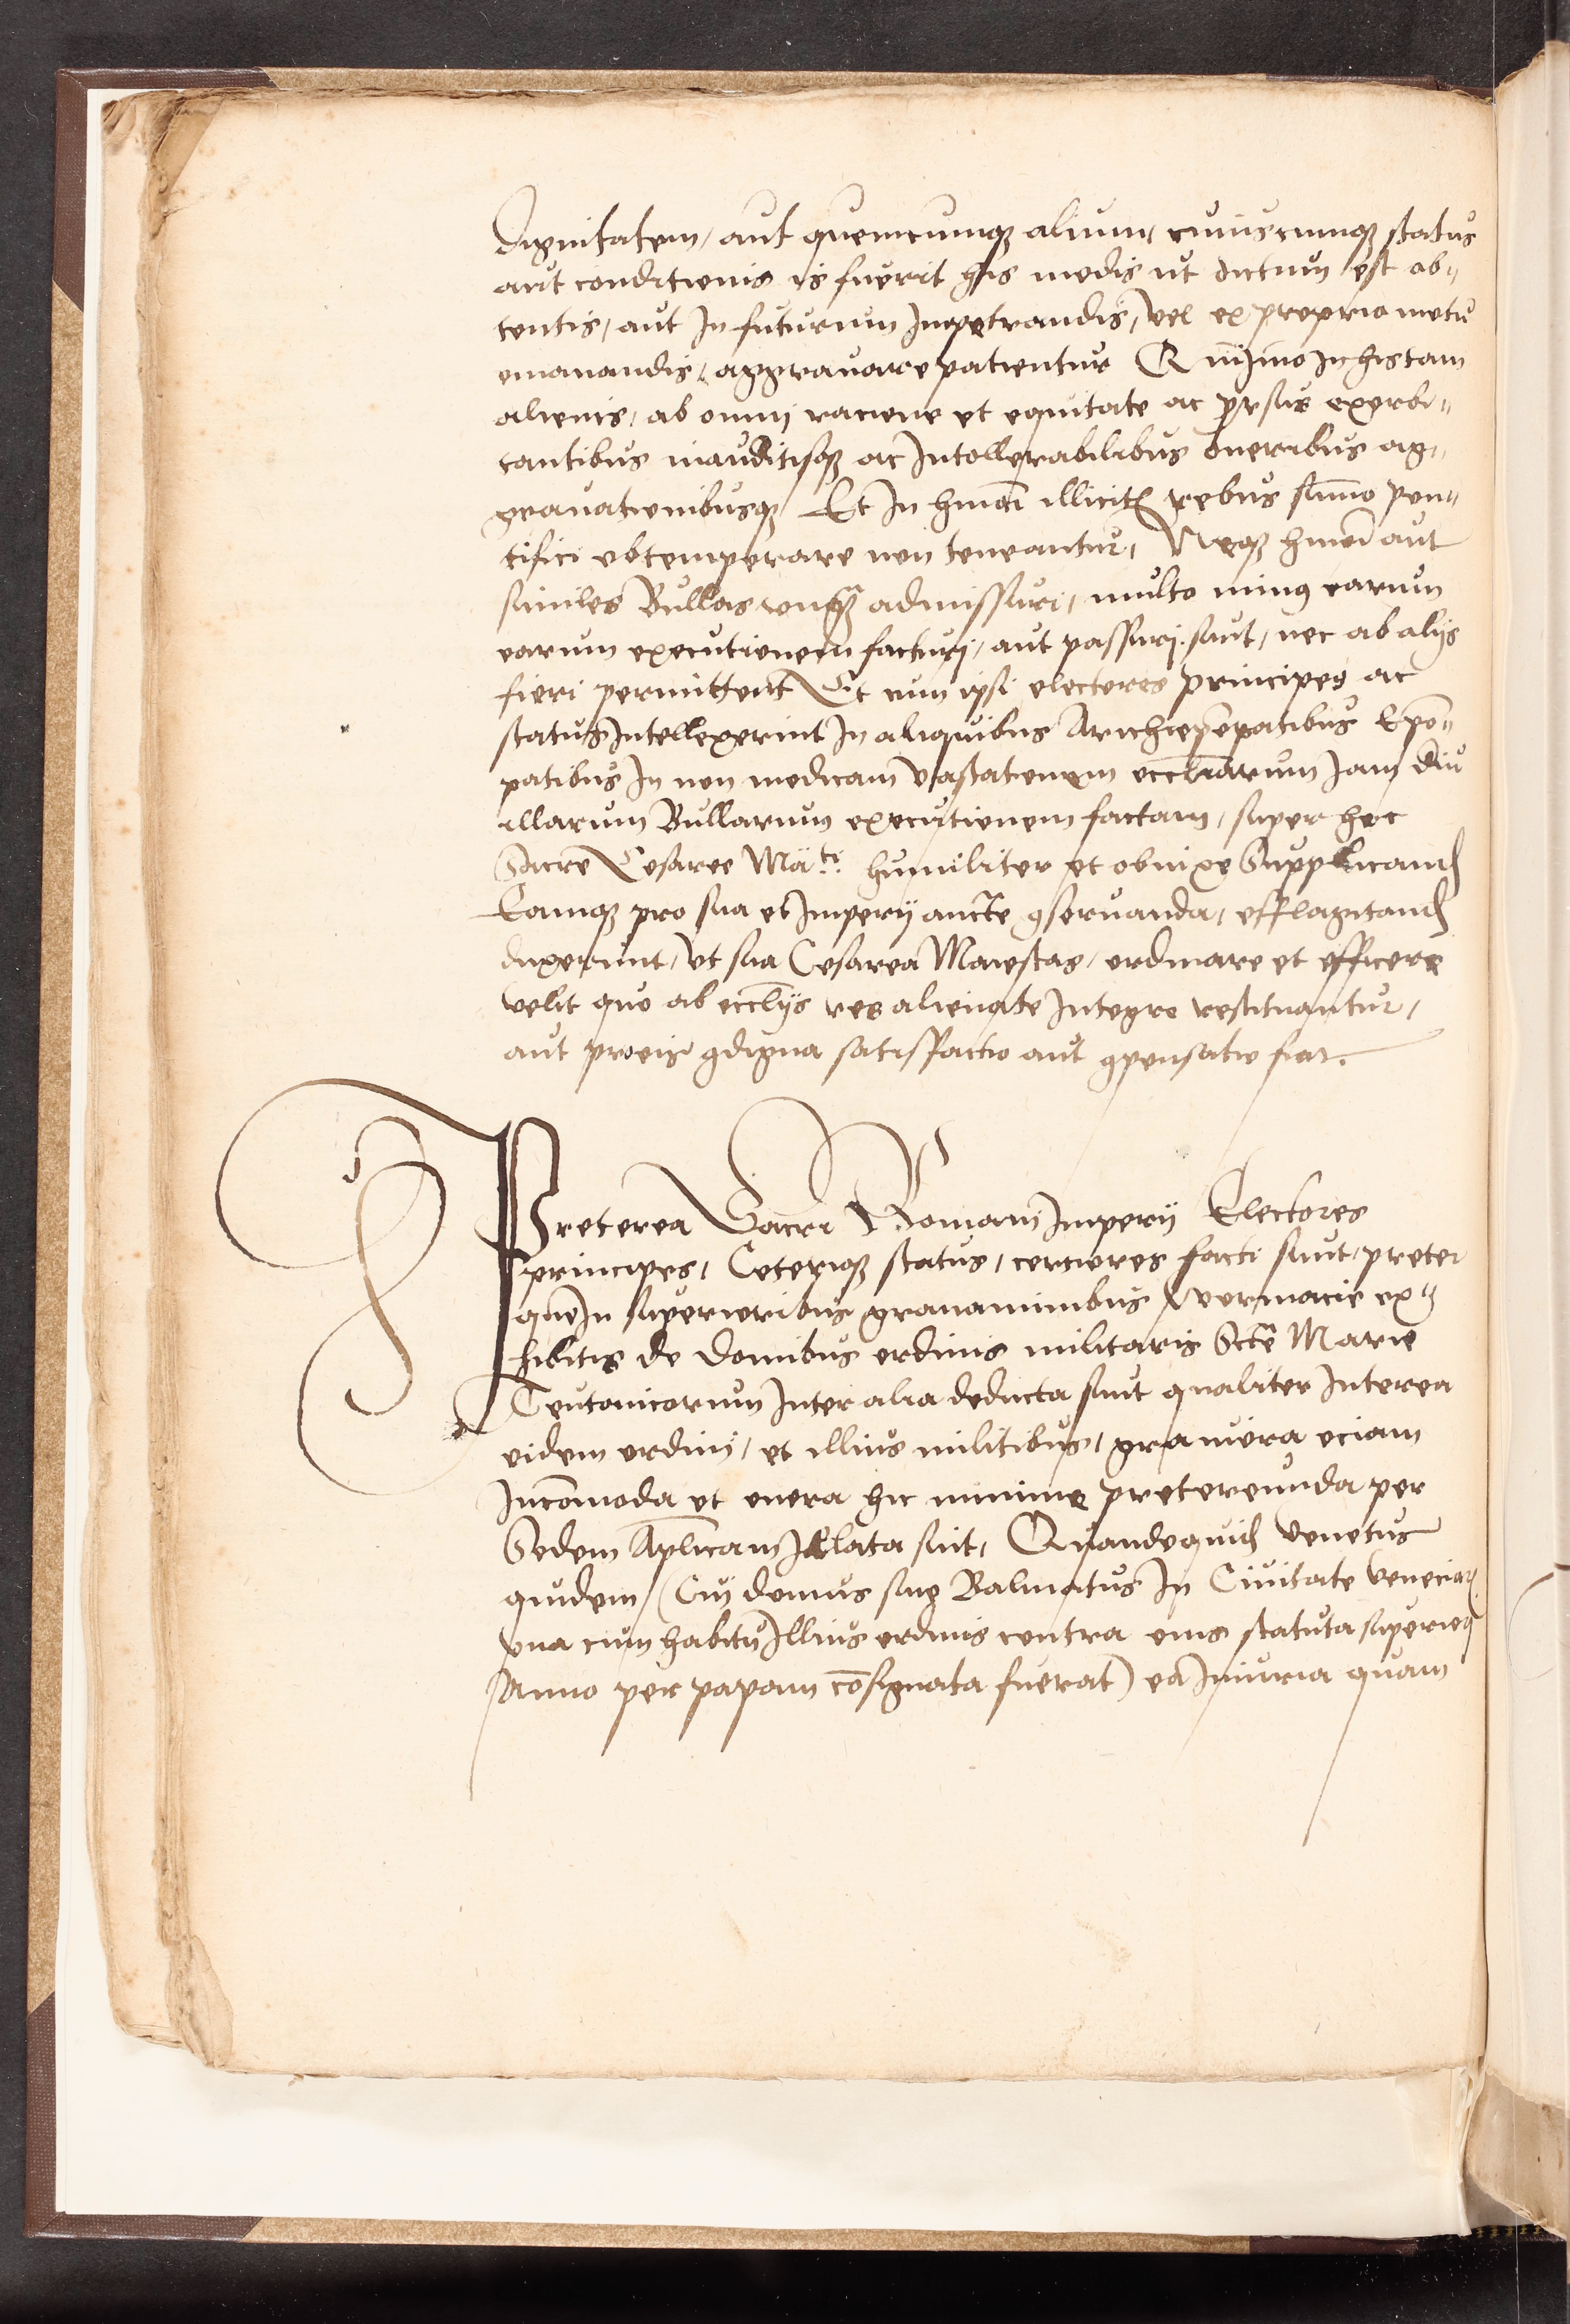 Dignitatem, aut quemcumqꝫ alium, cuiuscumqꝫ status
aut conditionis is fuerit his modis ut dictum est ob-
tentis, aut In futurum Impetrandis, vel ex proprio motu
emanandis, aggravare patientur Quinimo In his tam
alienis, ab omnj racione et equitate ac prorsus exorbi-
tantibus inauditisqꝫ ac Intollerabilibus oneribus ag-
gravationibusqꝫ Et In hmoi illicitis rebus sūmo pon-
tifici obtemperare non teneantur, Neqꝫ hmoi aut
similes Bullas unqꝫ admissuri, multo minꝯ earum
earum executionem facturj, aut passurj sint, nec ab alijs
fieri permittent Et cum ipsi electores principes ac
status Intellexerint In aliquibus Archiepopatibus Epo-
patibus In non modicam vastationem eccliarum Jam diu
illarum Bullarum executionem factam, super hoc
Sacre Cesaree Maᵗⁱ humiliter et obnixe Supplicand
Eamqꝫ pro sua et Imperij aucte ꝯservanda, efflagitand
duxerunt, ut sua Cesarea Maiestas, ordinare et efficere
velit quo ab ecclijs res alienate Integre restituantur,
aut pro eis ꝯdigna satisfactio aut ꝯpensatio fiat.
Preterea Sacri Romani Imperij Electores
principes, Ceteriqꝫ status, certiores facti sunt, preter
que In superioribus gravaminibus Wormacie ex-
hibitis de domibus ordinis militaris Scte Marie
Teutonicorum Inter alia deducta sunt qualiter Interea
eidem ordinj, et illius militibus, graviora eciam
Incōmoda et onera hic minime pretereunda per
Sedem Aplicam Illata sint, Quandoquid Venetus
quidem (Cuj domus sua Balinatus In Civitate Veneciaꝝ
una cum habitu Illius ordinis contra eius statuta superiori
Anno per papam cōsignata fuerat) ea Iniuria quam